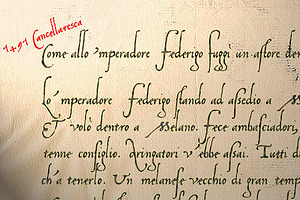 1491 Cancellaresca
Come allo 'mperadore Federigo fuggì un astore den
Lo 'mperadore Federigo stando ad assedio a Melano
Et volò dentro a Melano. Fece ambasciadori,
tenne consiglio. Aringatori v'ebbe assai. Tutti di
ch'a tenerlo. Un melanese vecchio di gran temp